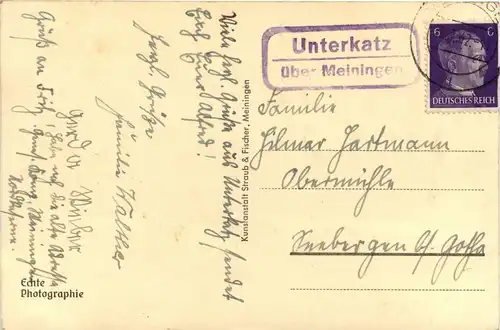 Viele herzl. Grüße aus Unterkatz sendet
Euch Euer Alfred!
Herzl. Grüße
Familie Walther
Gerd u.
Gruß an Fritz.
Echte
Photographie
Kunstanstalt Straub & Fischer, Meiningen
Unterkatz
über Meiningen
6 6
DEUTSCHES REICH
Familie
Hilmar Hartmann
Obermühle
Seebergen b/ Gotha